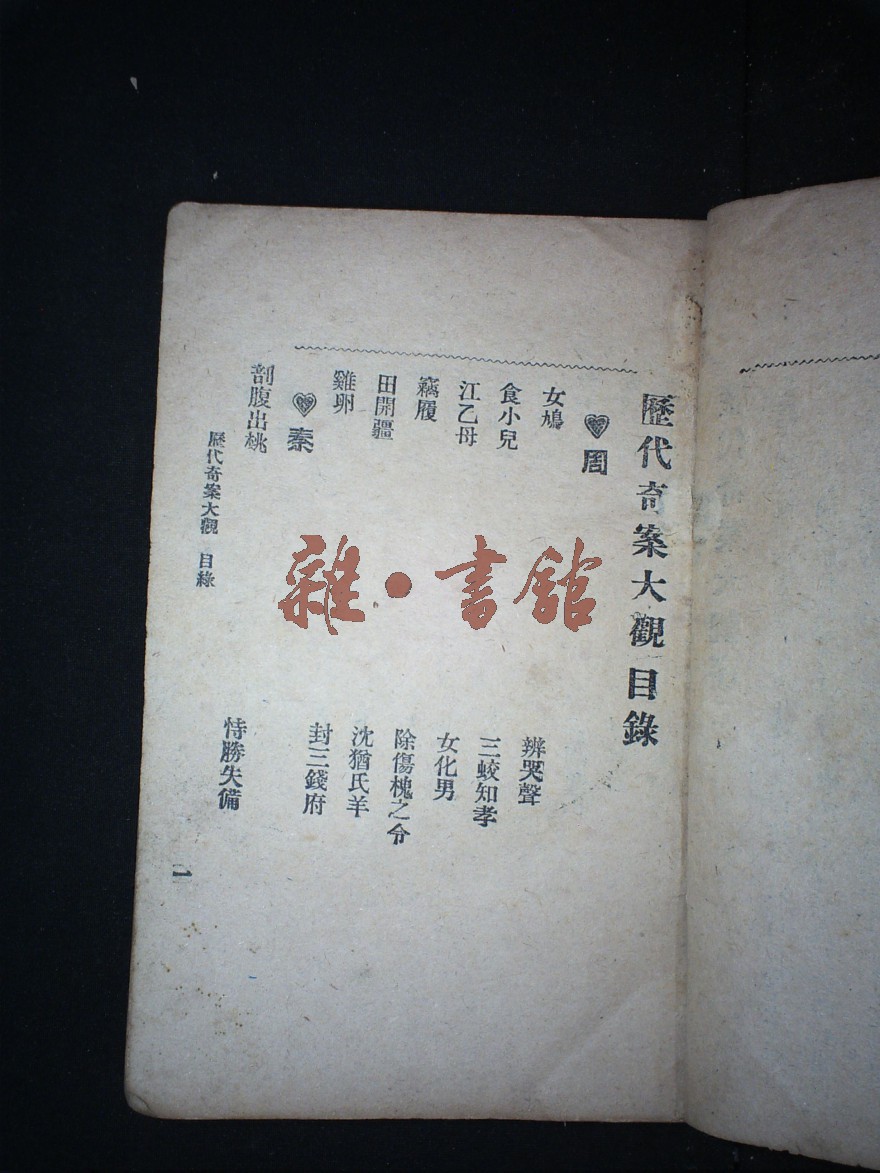 歷代奇案大觀目錄
周
女鳩
辨哭聲
食小兒
三蛟知孝
江乙母
女化男
竊履
除傷槐之令
田開疆
沈猶氏羊
雞卵
封三錢府
秦
剖腹出桃
恃勝失備
歷代奇案大觀 目錄
一
雜·書館